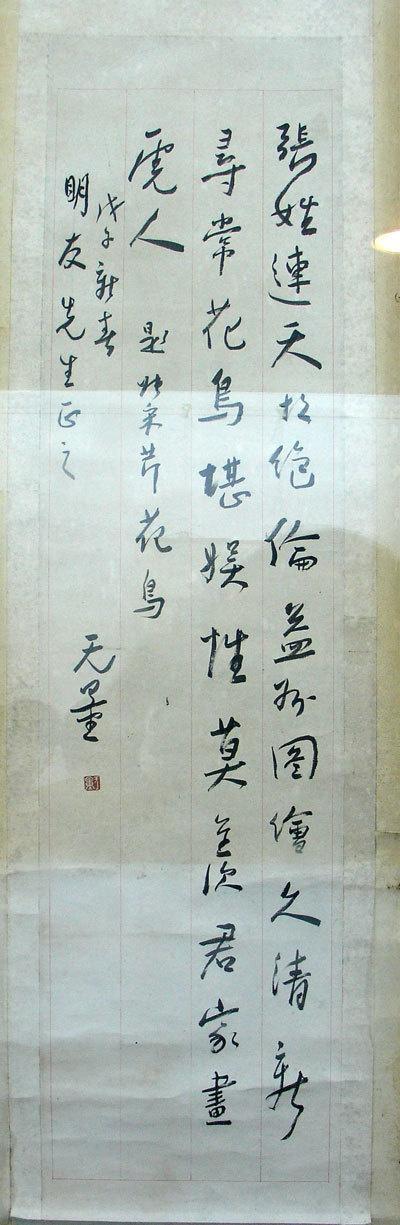 張姓連天技絕倫益州圖繪久清新
尋常花鳥堪娛性莫羨君家畫
虎人 題張采芹花鳥
戊子新春
明友先生正之
无量